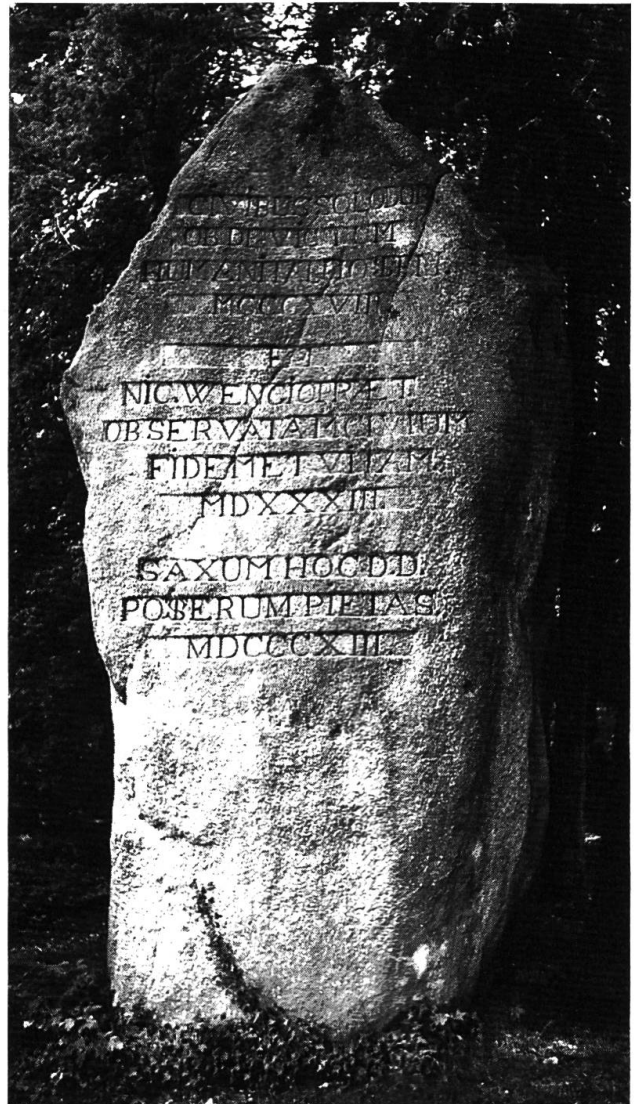 CIVIBUS SOLODOR.
OB DEVICTUM
HUMANITATE HOSTEM.
MCCCXVIII.
ET
NIC. WENGIO PRÆT.
OB SERVATAM CIVIUM
FIDEM ET VITAM
MDXXXIII.
SAXUM HOC D.D.
POSTERUM PIETAS
MDCCCXIII.